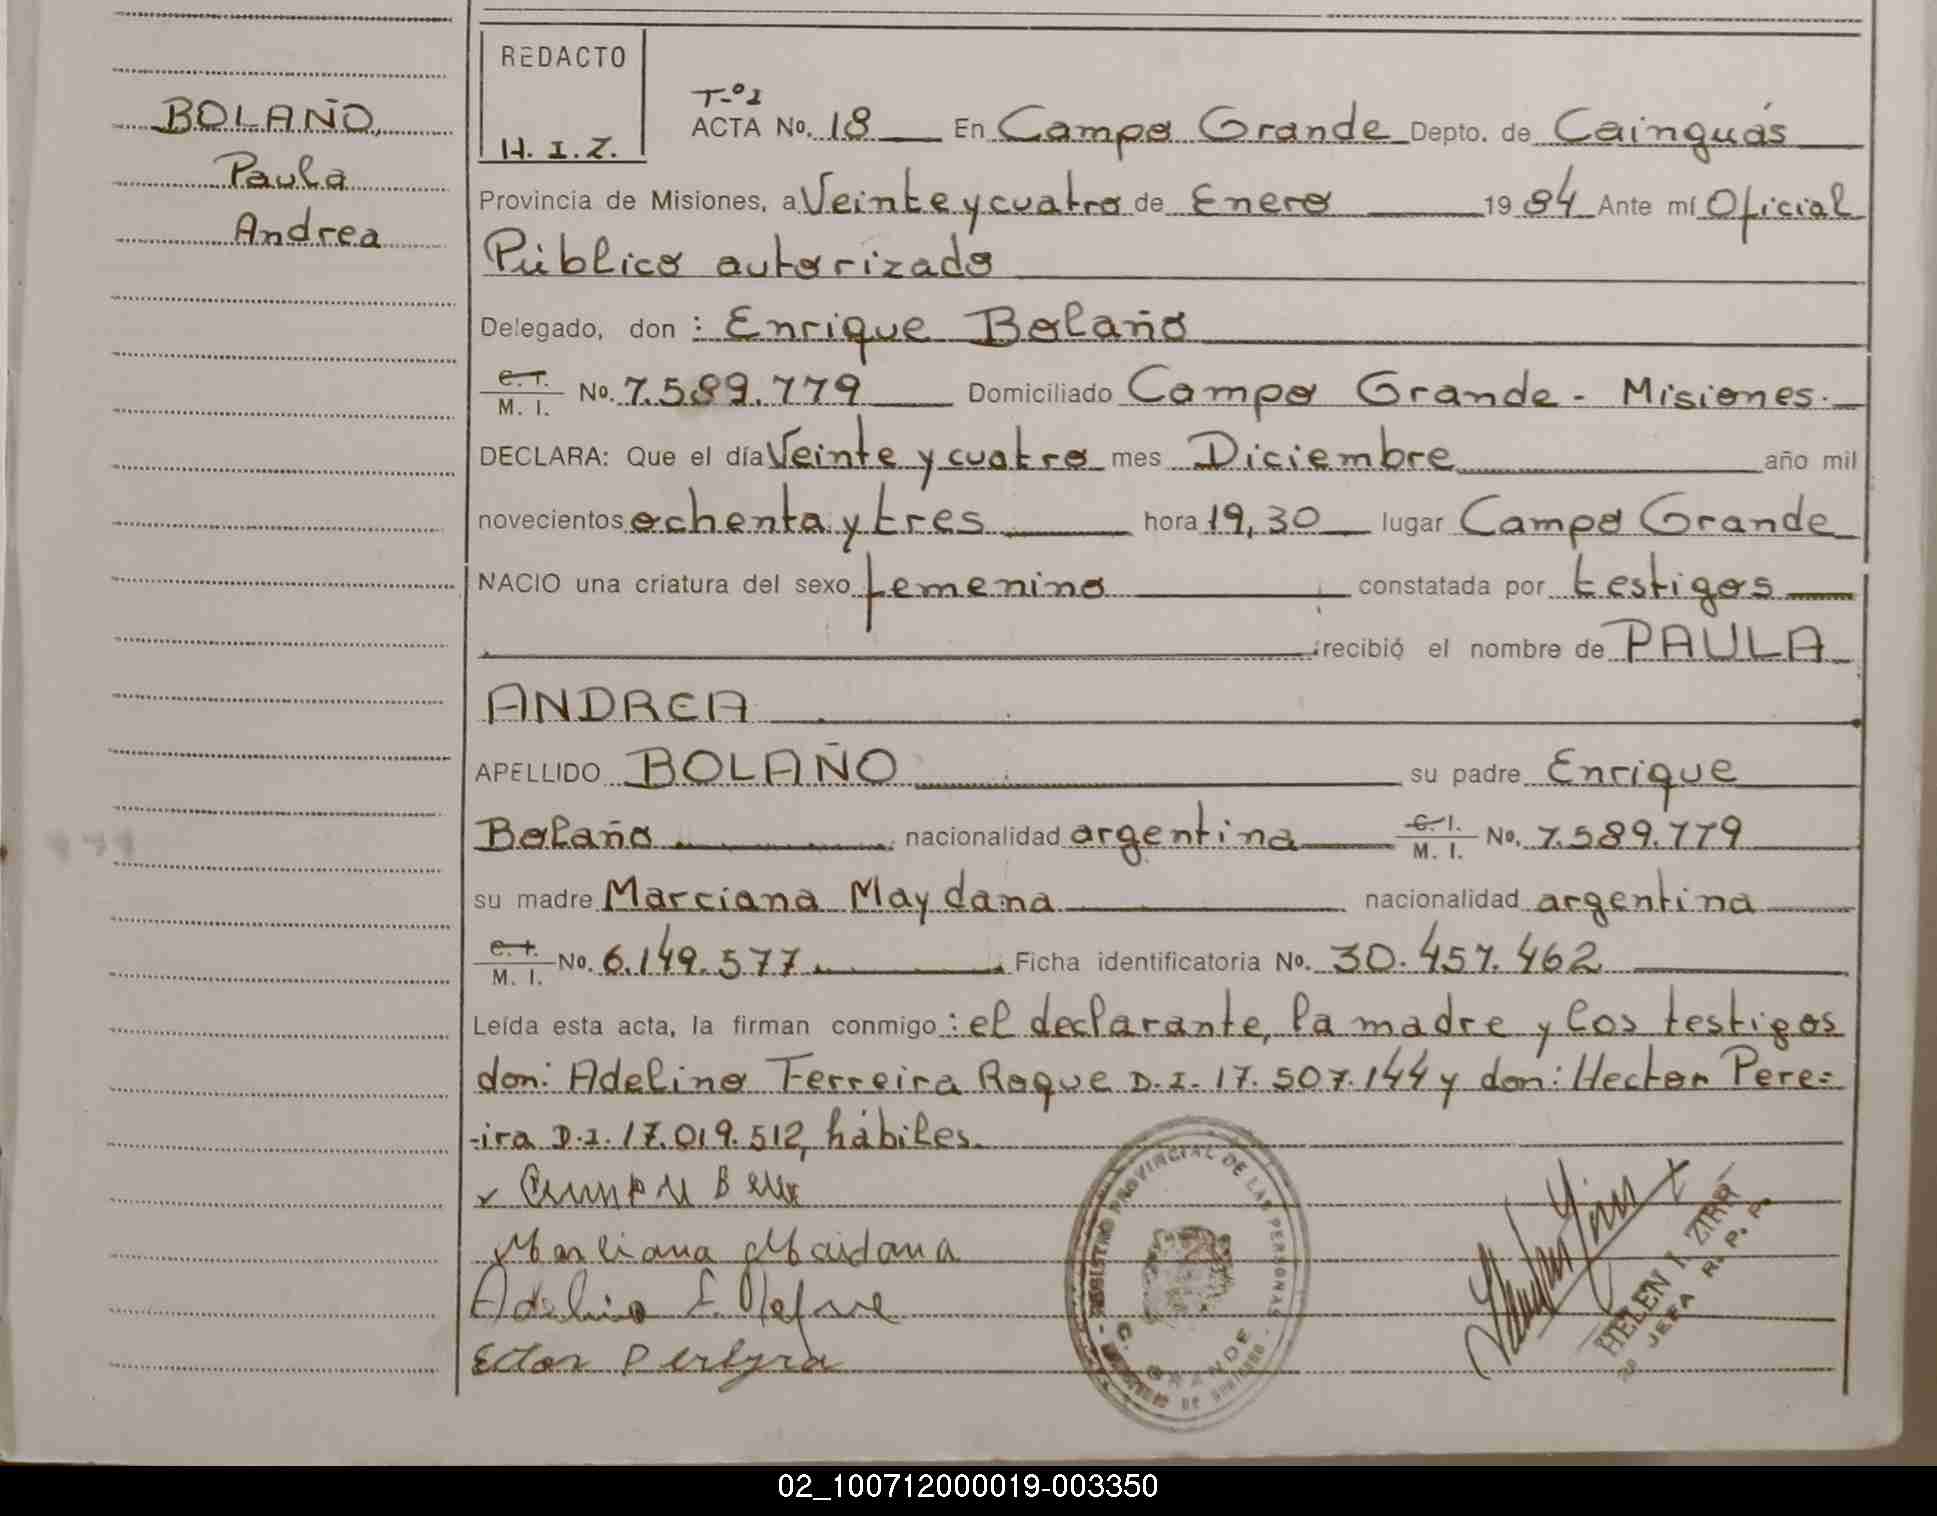 BOLAÑO,
Paula
Andrea
REDACTO
H. I. Z.
T-º1
ACTA No. 18 En Campo Grande Depto. de Cainguás
Provincia de Misiones, a Veinte y cuatro de Enero 1984 Ante mí Oficial
Público autorizado
Delegado, don : Enrique Bolaño
C. I. / M. I. No. 7.589.779 Domiciliado Campo Grande - Misiones.
DECLARA: Que el día Veinte y cuatro mes Diciembre año mil
novecientos ochenta y tres hora 19,30 lugar Campo Grande
NACIO una criatura del sexo femenino constatada por testigos
recibió el nombre de PAULA
ANDREA
APELLIDO BOLAÑO su padre Enrique
Bolaño nacionalidad argentina C. I. / M. I. No. 7.589.779
su madre Marciana Maydana nacionalidad argentina
C. I. / M. I. No. 6.149.577 Ficha identificatoria No. 30.457.462
Leída esta acta, la firman conmigo : el declarante, la madre y los testigos
don: Adelino Ferreira Roque D.I. 17.507.144 y don: Hector Pere=
-ira D.I. 17.019.512, hábiles.
Marciana Maidana
Ector Pereyra
REGISTRO PROVINCIAL DE LAS PERSONAS
C. GRANDE
HELEN I. ZIRR
JEFA R. P. P.
02_100712000019-003350